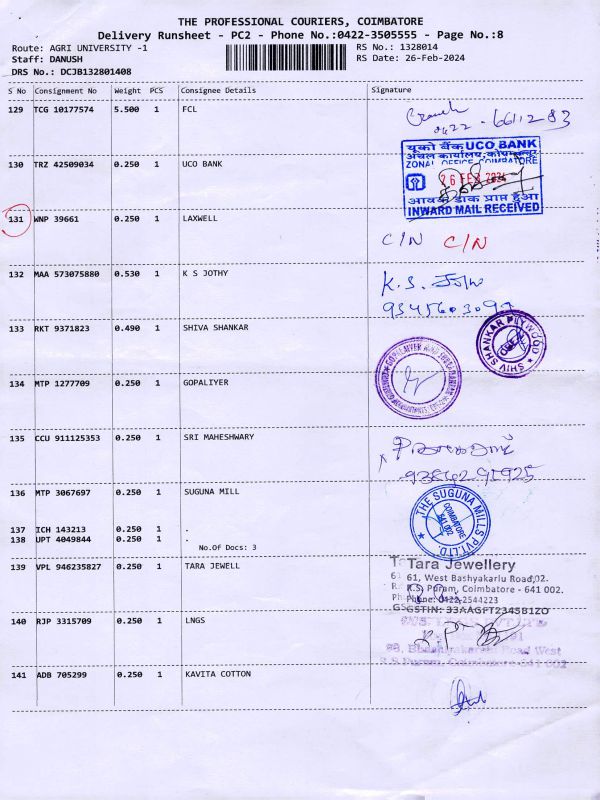 THE PROFESSIONAL COURIERS, COIMBATORE
Delivery Runsheet - PC2 - Phone No.:0422-3505555 - Page No.:8
Route: AGRI UNIVERSITY -1
Staff: DANUSH
DRS No.: DCJB132801408
RS No.: 1328014
RS Date: 26-Feb-2024
S No Consignment No Weight PCS Consignee Details Signature
129 TCG 10177574 5.500 1 FCL
130 TRZ 42509034 0.250 1 UCO BANK
यूको बैंक UCO BANK
ZONAL OFFICE COIMBATORE
26 FEB 2024
आवक डाक प्राप्त हुआ
INWARD MAIL RECEIVED
131 WNP 39661 0.250 1 LAXWELL
C/N C/N
132 MAA 573075880 0.530 1 K S JOTHY
K.S.
133 RKT 9371823 0.490 1 SHIVA SHANKAR
SHIV SHANKAR PLYWOOD
134 MTP 1277709 0.250 1 GOPALIYER
135 CCU 911125353 0.250 1 SRI MAHESHWARY
136 MTP 3067697 0.250 1 SUGUNA MILL
THE SUGUNA MILLS PVT.LTD.
COIMBATORE
641 002
137 ICH 143213 0.250 1 .
138 UPT 4049844 0.250 1 .
No.Of Docs: 3
139 VPL 946235827 0.250 1 TARA JEWELL
Tara Jewellery
61, West Bashyakarlu Road,02.
R.S. Puram, Coimbatore - 641 002.
Phone: 0422-2544223
GSTIN: 33AAGFT2345B1ZO
140 RJP 3315709 0.250 1 LNGS
141 ADB 705299 0.250 1 KAVITA COTTON